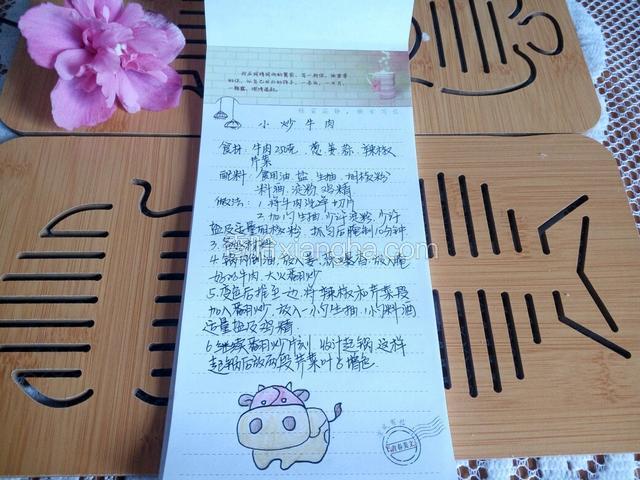 小炒牛肉
食材：牛肉250克、葱、姜、蒜、辣椒
芹菜
配料：食用油、盐、生抽、胡椒粉
料酒、淀粉、鸡精
做法：1.将牛肉洗净切片
2.加1勺生抽,少许淀粉,少许
盐及适量胡椒粉,抓匀后腌制10分钟
3.
4.锅内倒油,放入姜、蒜爆香,放入腌
好的牛肉,大火翻炒
5.变色后推至一边,将辣椒和芹菜段
加入翻炒,放入一小勺生抽,小勺料酒
适量盐及鸡精
6.继续翻炒片刻,出汁起锅,这样
起锅后放两段芹菜叶子增色
xiangha.com